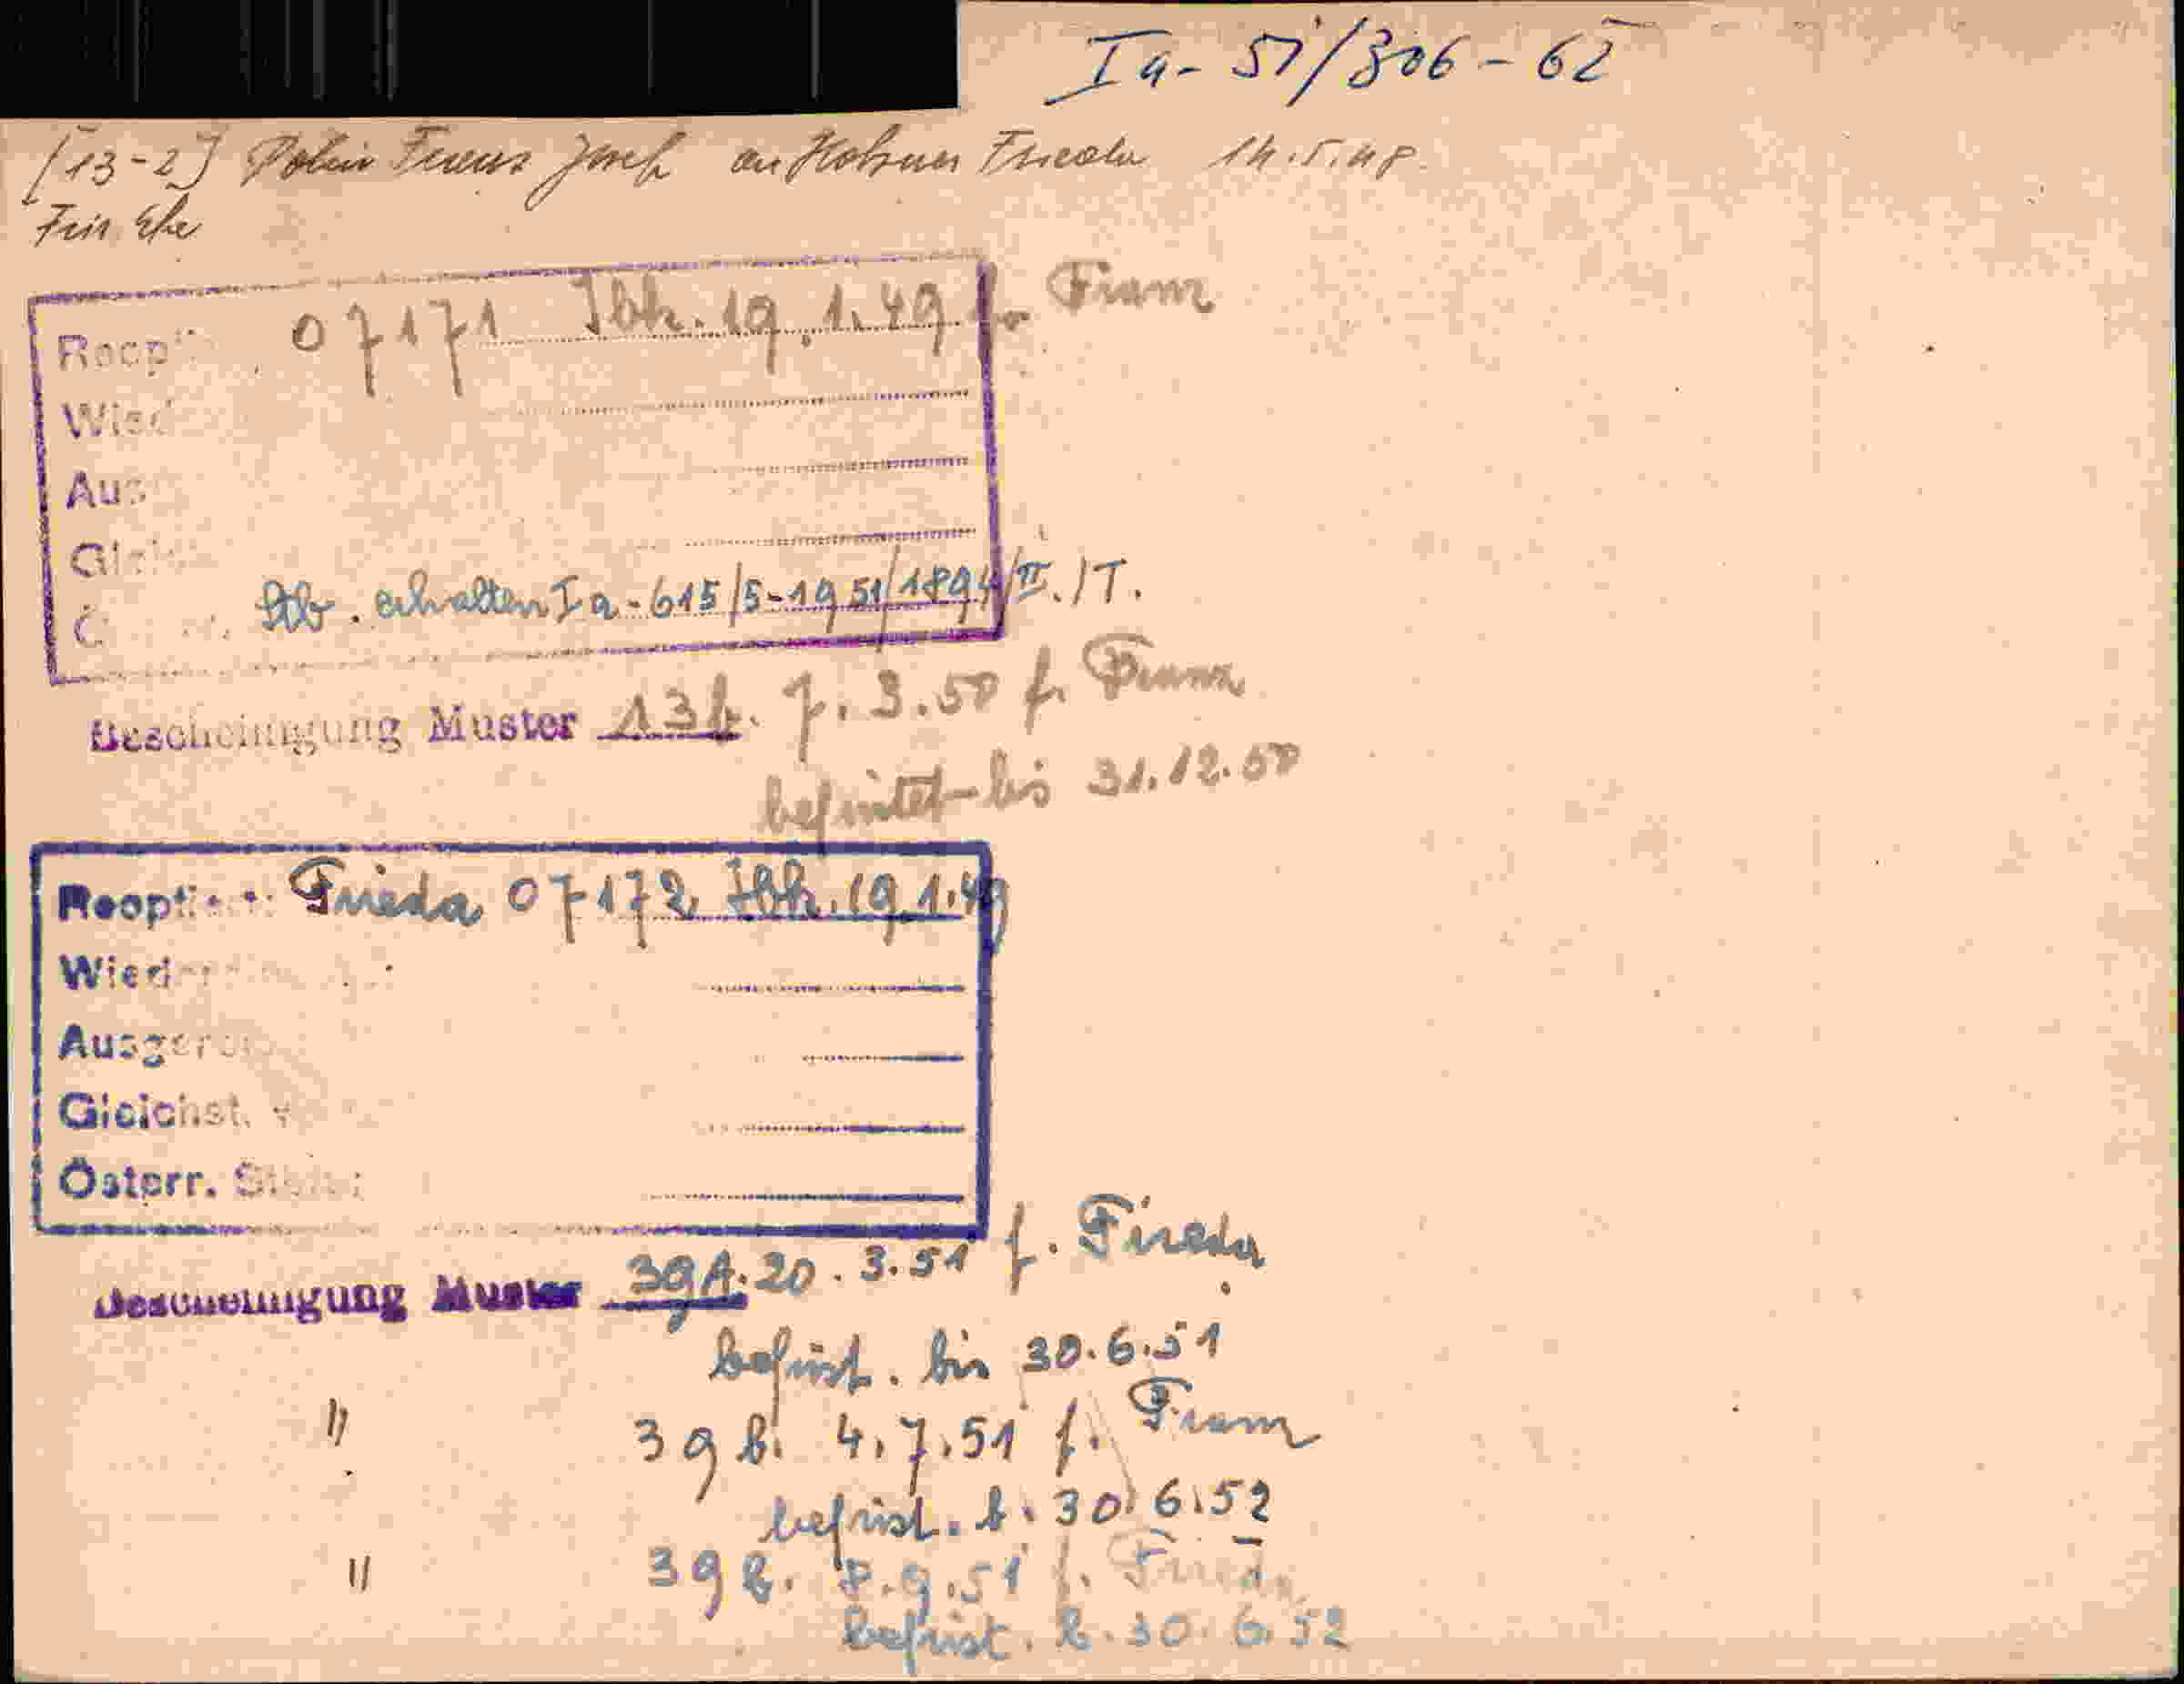 Ia - 51/306 - 62
[13-2] Josef an Frieda 14.5.48
Ehe
Reopt 07171 Ibk. 19.1.49 f. Franz
Wied
Aus
Gl
Ö Stb. erhalten Ia-615/5-1951/1894/II./T.
Bescheinigung Muster 13b. 7.3.50 f. Franz
befristet bis 31.12.50
Reopt Frieda 07172 Ibk. 19.1.49
Wied
Ausger
Gleichst.
Österr. St
Bescheinigung Muster 39A. 20.3.51 f. Frieda
befrist. bis 30.6.51
" 39b. 4.7.51 f. Franz
befrist. b. 30.6.52
" 39b. 8.9.51 f. Frieda
befrist. b. 30.6.52